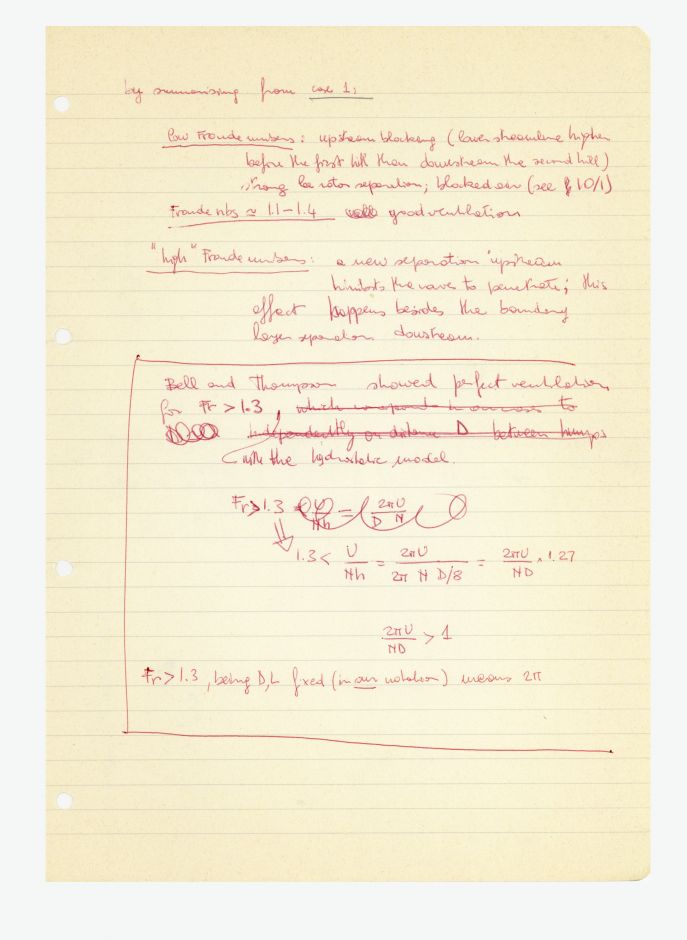 by summarising from case 1:
low Froude numbers: upstream blocking (lower streamline higher
before the first hill than downstream the second hill)
strong lee rotor separation; blocked air (see § 10/1)
Froude nbs ≃ 1.1–1.4 good ventilation
"high" Froude numbers: a new separation upstream
the waves to penetrate; this
effect happens besides the boundary
layer separation downstream.
Bell and Thompson showed perfect ventilation
for Fr > 1.3, which to
independently on distance D between humps
with the hydrostatic model.
Fr > 1.3 U/Nh = 2πU/D N
1.3 < U/Nh = 2πU/2π N D/8 = 2πU/ND × 1.27
2πU/ND > 1
Fr > 1.3, being D, L fixed (in our notation) means 2π